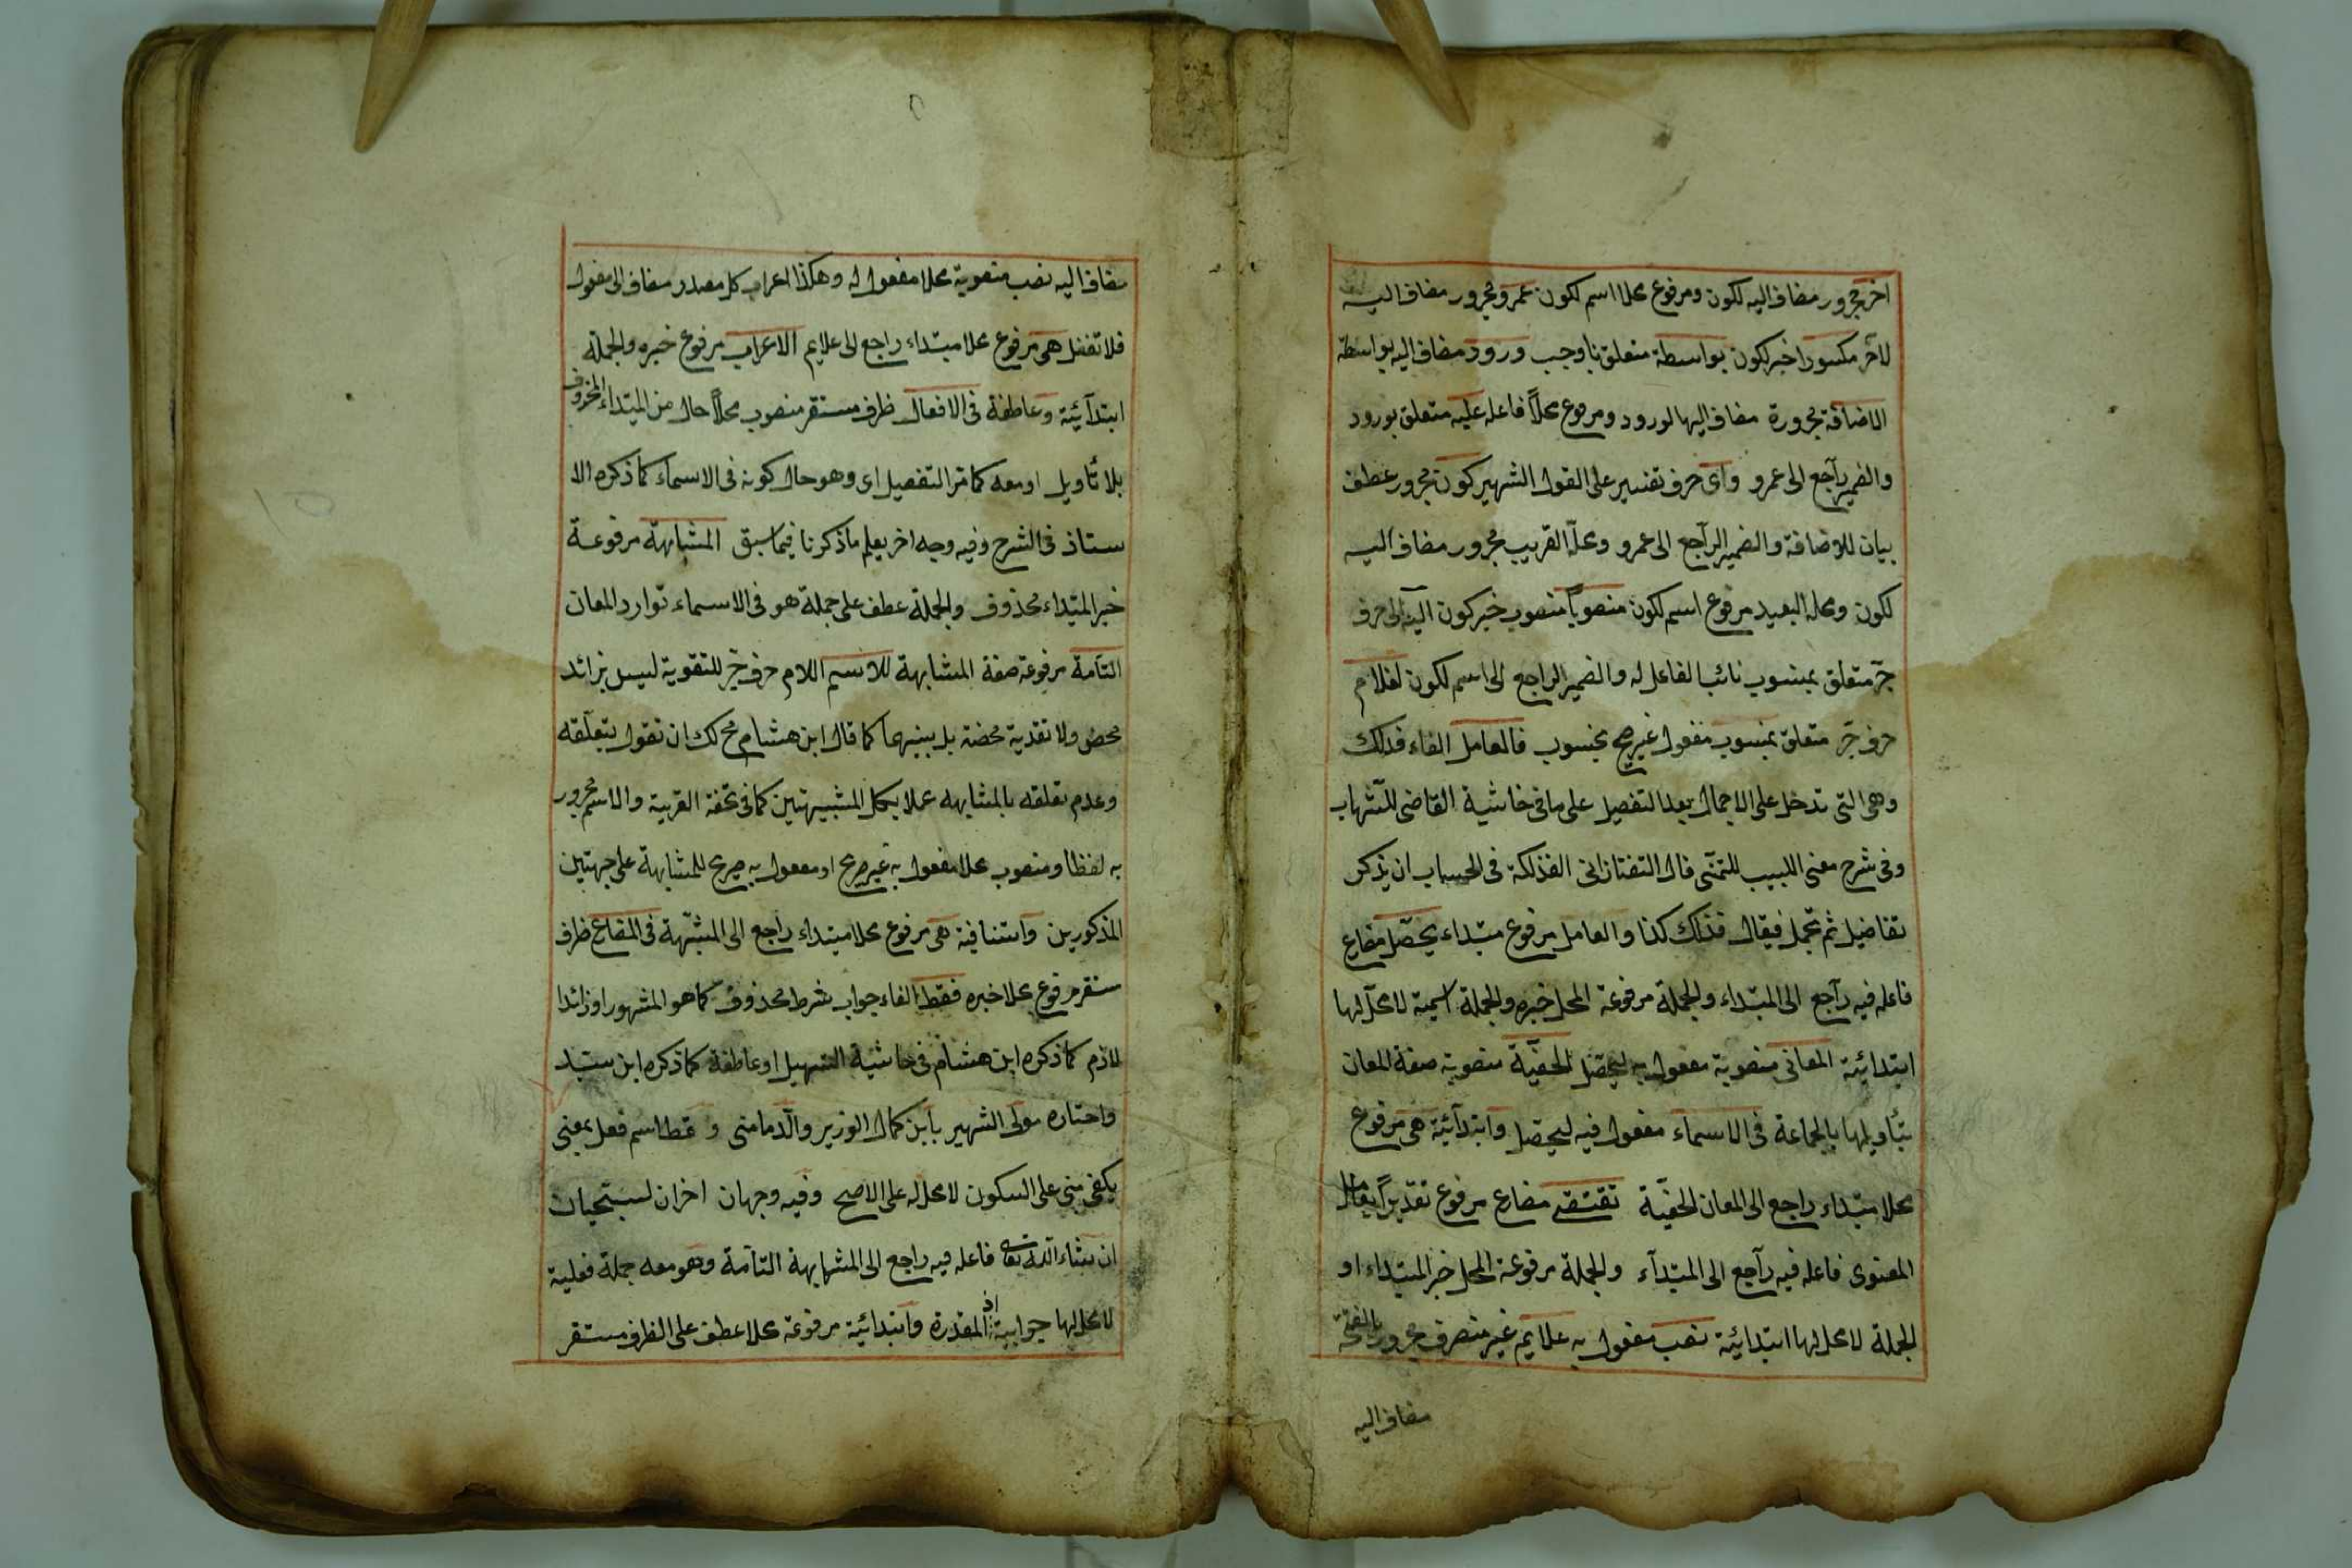 اخر مجرور مضاف اليه لكون ومرفوع محلا اسم لكون عمرو مجرور مضاف اليه
لآخر مكسورا خبر لكون بواسطة متعلق باوجب ورود مضاف اليه بواسطة
الاضافة مجرورة مضاف اليها لورود ومرفوع محلاً فاعله عليه متعلق بورود
والضمير رآجع الى عمرو وای حرف تفسير على القول الشهير كون مجرور عطف
بيان للاضافة والضمير الرآجع الى عمرو ومحلّه القريب مجرور مضاف اليه
لكون ومحله البعيد مرفوع اسم لكون منصوباً منصوب خبر كون اليه الى حرف
جرّ متعلق بمنسوب نائب الفاعل له والضمير الراجع الى اسم لكون لغلام
حرف جرّ متعلق بمنسوب مفعول غير صريح بمنسوب فالعامل الفاء فذلك
وهى التى تدخل على الاجمال بعد التفصيل على ما فى حاشية القاضى للشهاب
وفى شرح مغنى اللبيب للشمنّى قال التفتازانى الفذلكة فى الحساب ان يذكر
تفاصيل ثم تجمل فيقال فذلك كذا والعامل مرفوع مبتداء يحصّل مضارع
فاعله فيه رآجع الى المبتداء والجملة مرفوعة المحل خبره والجملة اسمية لا محلّ لها
ابتدائية المعانى منصوبة مفعول به ليحصّل الخفيّة منصوبة صفة المعان
بتأويلها بالجماعة فى الاسماء مفعول فيه ليحصل وابتدآئية هى مرفوع
محلا مبتداء راجع الى المعان الخفيّة تقتضى مضارع مرفوع تقديراً بعامل
المعنوى فاعله فيه رآجع الى المبتدآء والجملة مرفوعة المحل خبر المبتداء او
الجملة لا محل لها ابتدائية نصب مفعول به علايم غير منصرف مجرور بالفتحة
مضاف اليه
مضاف اليه نصب منصوبة محلا مفعول له وهكذا اعراب كل مصدر مضاف الى مفعول
فلا تغفل هى مرفوع محلا مبتداء راجع الى علايم الاعراب مرفوع خبره والجملة
ابتدآئية وعاطفة فى الافعال ظرف مستقر منصوب محلاً حال من المبتداء المحذوف
بلا تأويل او معه كما مرّ التفصيل اى وهو حال كونه فى الاسماء كما ذكره الا
ستاذ فى الشرح وفيه وجه اخر يعلم ما ذكرنا فيما سبق المشابهة مرفوعة
خبر المبتداء محذوف والجملة عطف على جملة هو فى الاسماء توارد المعان
التآمة مرفوعة صفة المشابهة للاسم اللام حرف جرّ للتقوية ليس بزائد
محض ولا تقدية محضة بل بينهما كما قال ابن هشام مح لك ان تقول بتعلّقه
وعدم تعلقه بالمشابهة عملا بكل المشبيهتين كما فى تحفة الغريبة والاسم مجرور
به لفظا ومنصوب محلا مفعول به غير صريح او مفعول به صريح للمشابهة على جهتين
المذكورين واستنافية هى مرفوع محلا مبتداء راجع الى المشبّهة فى المضارع ظرف
مستقر مرفوع محلا خبره فقط الفاء جواب شرط محذوف كما هو المشهور او زائدا
للازم كما ذكره ابن هشام فى حاشية التسهيل او عاطفة كما ذكره ابن سيّد
واختاره مولى الشهير بابن كمال الوزير والّدمامنى و قط اسم فعل بمعنى
يكفى مبنى على السكون لا محل له على الاصح وفيه وجهان اخران لسيتحيان
ان شاء الله تعالى فاعله فيه راجع الى المشابهة التآمة وهو معه جملة فعلية
لا محل لها جوابية اذ المقدرة وابتدائية مرفوعة محلا عطف على الظرف مستقر